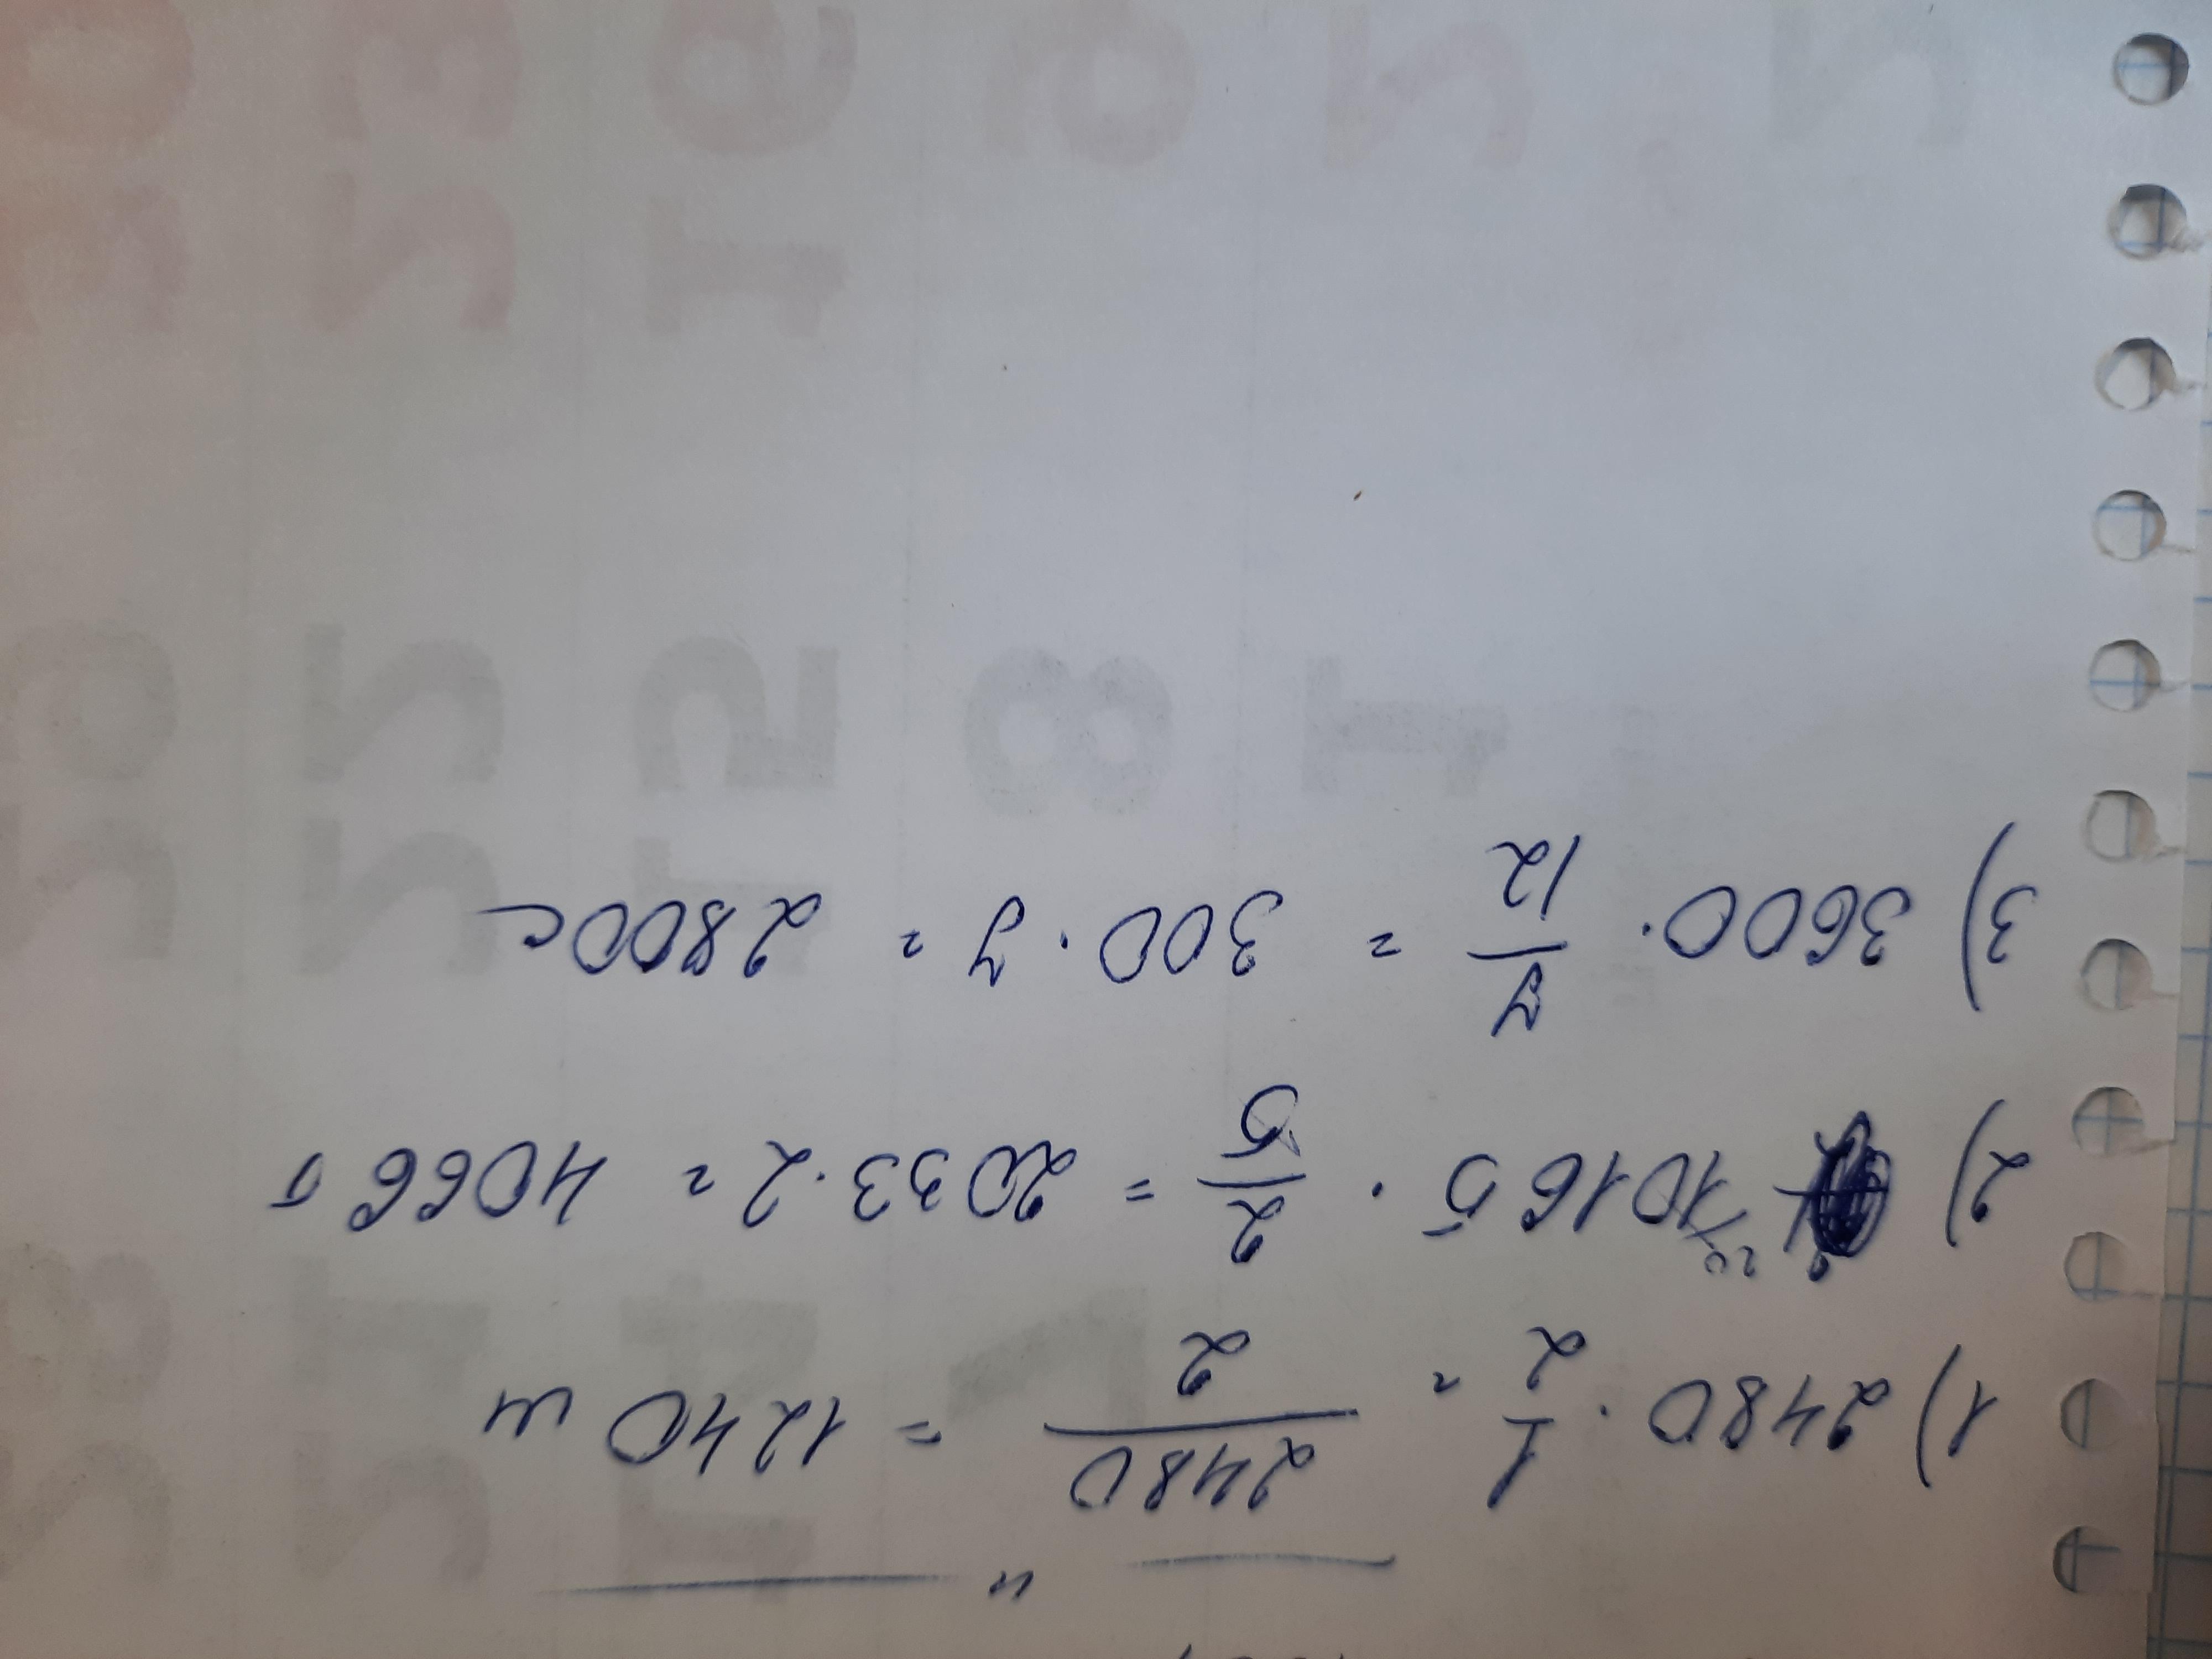 "
1) 2480 · 1/2 = 2480/2 = 1240 м
2) 10165 · 2/5 = 2033 · 2 = 4066 т
3) 3600 · 7/12 = 300 · 7 = 2800 с